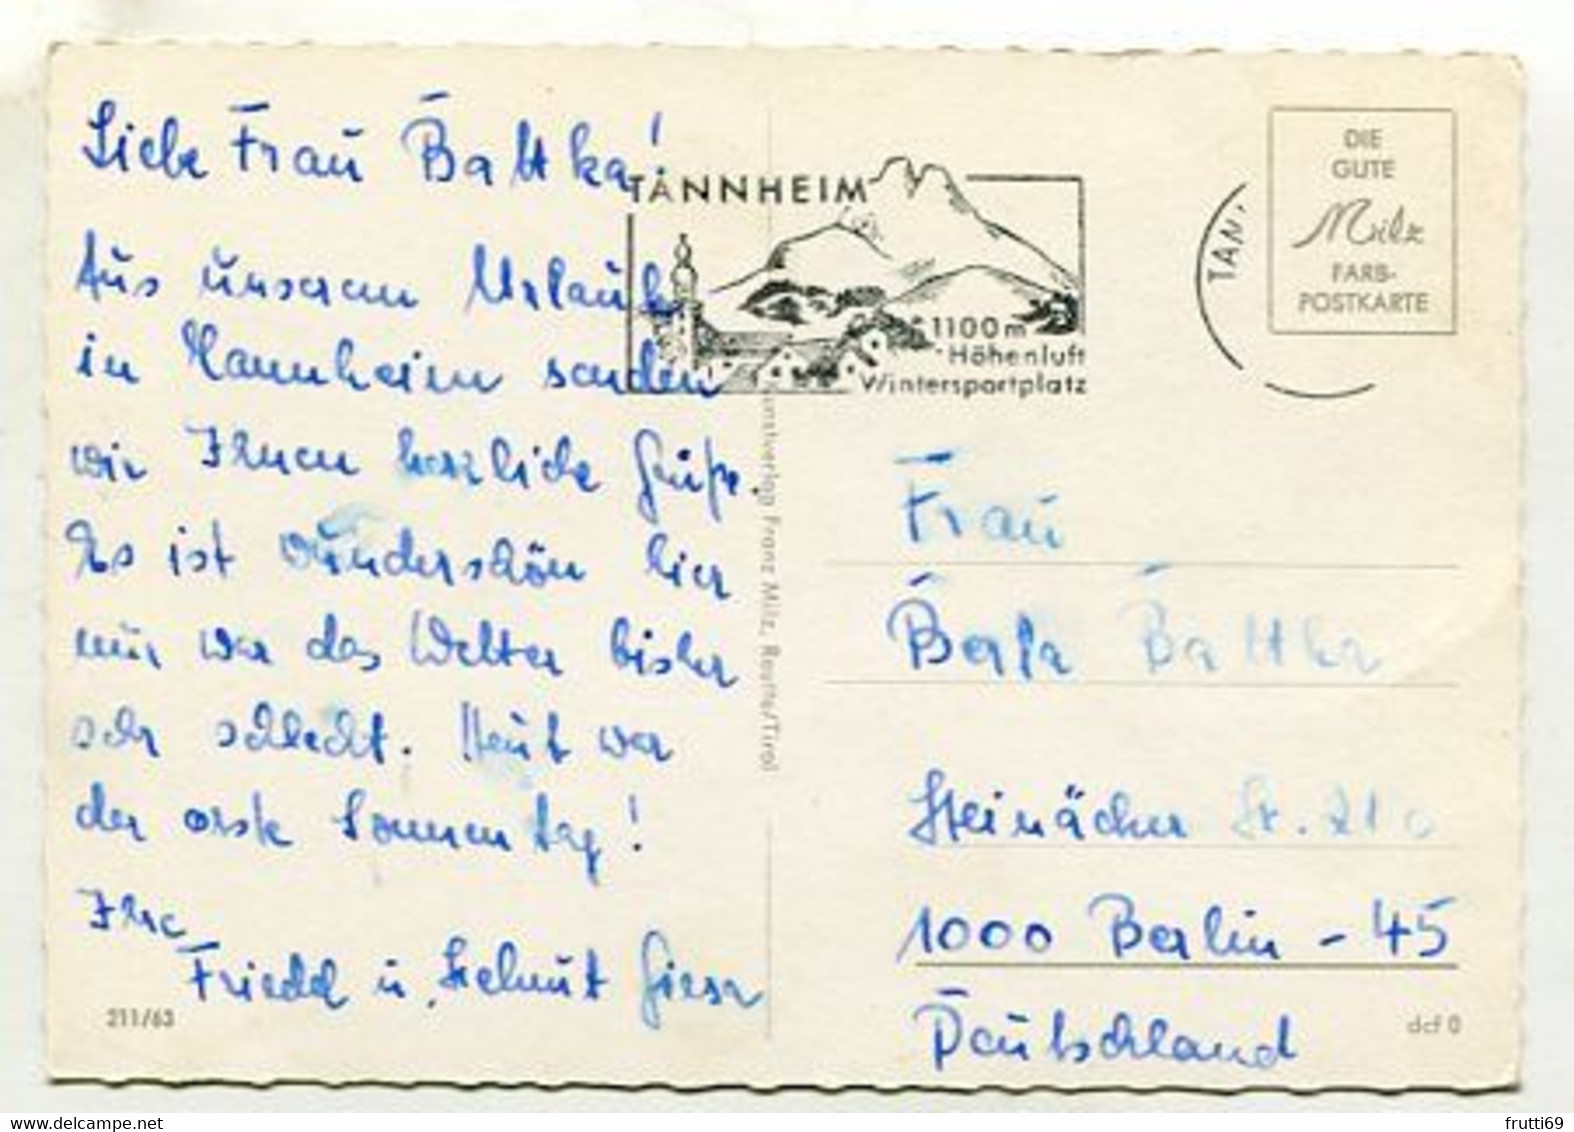 Liebe Frau Battka!
Aus unserem Urlaub
in Tannheim senden
wir Ihnen herzliche Grüße.
Es ist wunderschön hier
nur war das Wetter bisher
sehr schlecht. Heut war
der erste Sonnentag!
Ihre
Friedel u. Helmut Gieser
211/63
TANNHEIM
1100m
Höhenluft
Wintersportplatz
TAN
DIE
GUTE
Milz
FARB-
POSTKARTE
Kunstverlag Franz Milz, Reutte/Tirol
Frau
Berta Battka
Steinäcker Str.
1000 Berlin - 45
Deutschland
dcf 0
frutti69